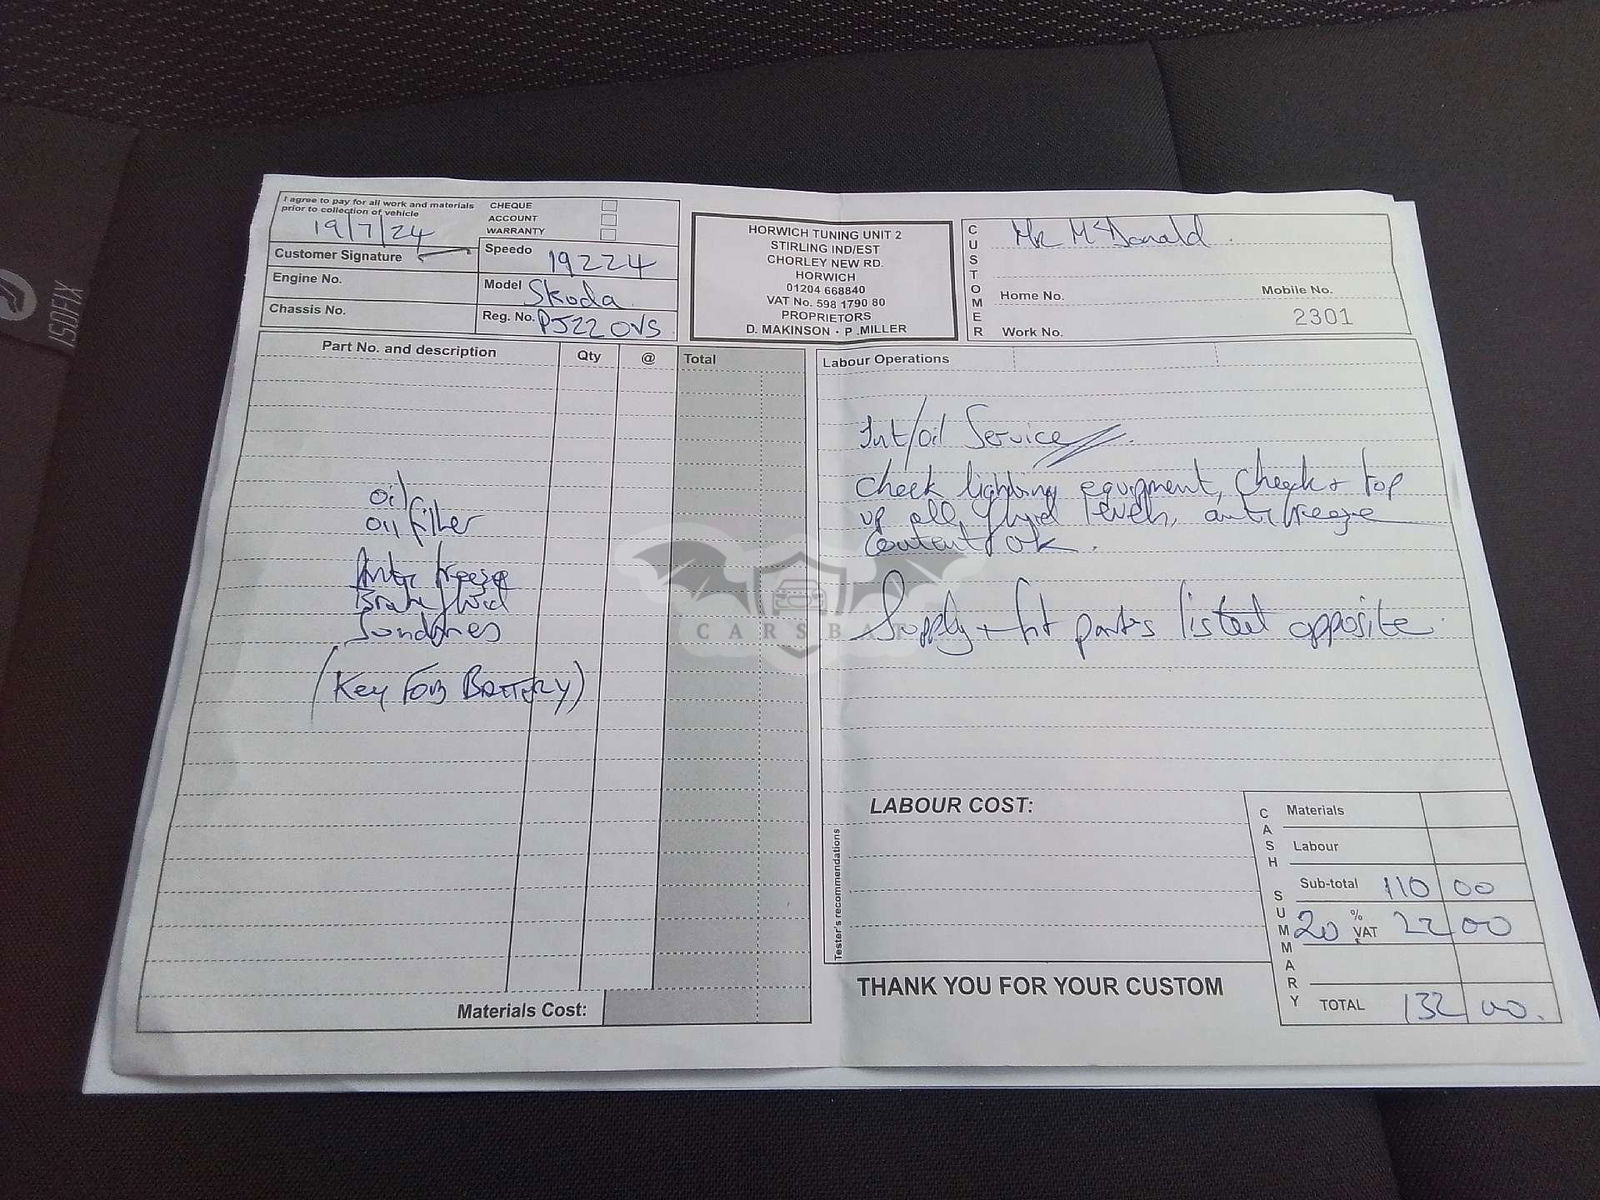 I agree to pay for all work and materials
prior to collection of vehicle
19/7/24
CHEQUE
ACCOUNT
WARRANTY
Customer Signature
Speedo 19224
Engine No.
Model Skoda
Chassis No.
Reg. No. PJ22 OVS
HORWICH TUNING UNIT 2
STIRLING IND/EST
CHORLEY NEW RD.
HORWICH
01204 668840
VAT No. 598 1790 80
PROPRIETORS
D. MAKINSON - P .MILLER
CUSTOMER
Mr McDonald
Home No.
Mobile No.
2301
Work No.
Part No. and description
Qty
@
Total
oil
oil filter
Anti freeze
Brake fluid
Sundries
(Key FOB BATTERY)
Materials Cost:
Labour Operations
Int/oil Service
Check lighting equipment, Check + top
up all fluid levels, antifreeze
Content ok.
Supply + fit parts listed opposite.
CARSBAT
LABOUR COST:
Tester's recommendations
THANK YOU FOR YOUR CUSTOM
CASH SUMMARY
Materials
Labour
Sub-total 110 00
20 % VAT 22 00
TOTAL 132 00.
ISOFIX